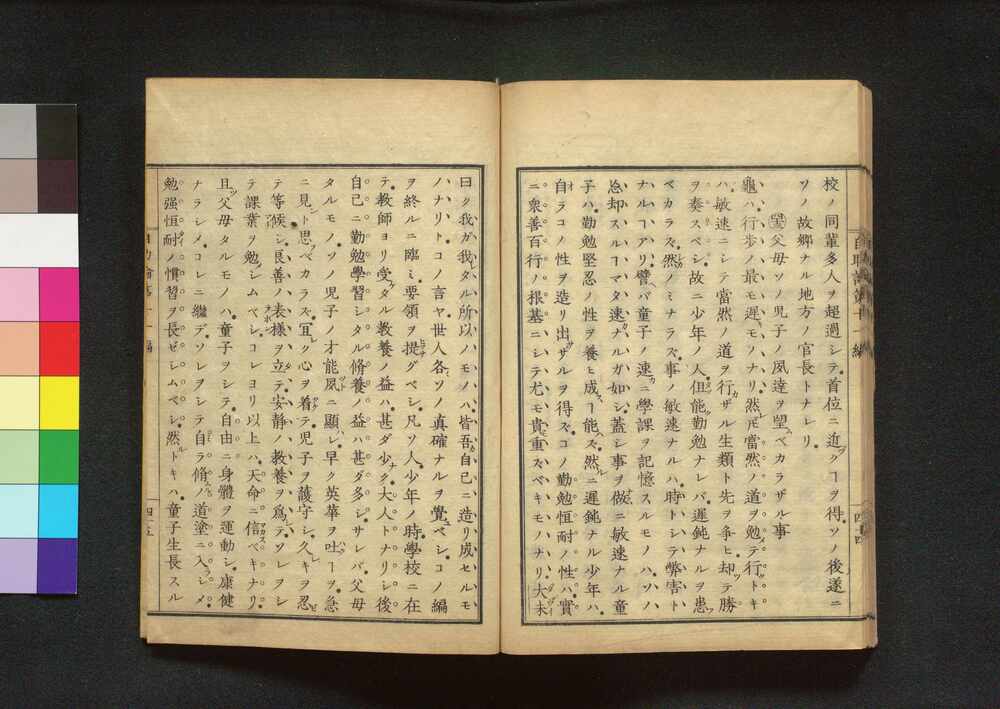 校ノ同輩多人ヲ超過シテ首位ニ近クヿヲ得ソノ後遂ニ
ソノ故郷ナル地方ノ官長トナレリ
父母ソノ児子ノ夙達ヲ望ベカラザル事
龜ハ行歩ノ最モ遲モノナリ然𪜈當然ノ道ヲ勉テ行トキ
ハ敏速ニシテ當然ノ道ヲ行ザル生類ト先ヲ爭ヒ却テ勝
ヲ奏スベシ故ニ少年ノ人但能勤勉ナレバ遲鈍ナルヲ患
ベカラズ然ノミナラズ事ノ敏速ナルハ時トシテ弊害ト
ナルヿアリ譬バ童子ノ速ニ學課ヲ記憶スルモノハソノ
忘却スルヿマタ速ナルガ如シ蓋シ事ヲ做ニ敏速ナル童
子ハ勤勉堅忍ノ性ヲ養ヒ成ヿ能ズ然ルニ遲鈍ナル少年ハ
自ラコノ性ヲ造リ出ザルヲ得ズコノ勤勉恒耐ノ性ハ實
ニ衆善百行ノ根基ニシテ尤モ貴重スベキモノナリ大未
曰ク我ガ我タル所以ノモノハ皆吾自己ニ造リ成セルモ
ノナリトコノ言ヤ世人各ソノ眞確ナルヲ覺ベシコノ編
ヲ終ルニ臨ミ要領ヲ提グベシ凡ソ人少年ノ時學校ニ在
テ教師ヨリ受タル教養ノ益ハ甚ダ少ク大人トナリシ後
自己ニ勤勉學習シタル脩養ノ益ハ甚ダ多シサレバ父母
タルモノソノ児子ノ才能夙ニ顯レ早ク英華ヲ吐ヿヲ急
ニ見ト思ベカラズ宜ク心ヲ着テ児子ヲ護守シ久キヲ忍
テ等候シ良善ノ表樣ヲ立テ安静ノ教養ヲ爲テソレヲシ
テ課業ヲ勉シムベシコレヨリ以上ハ天命ニ信ベキナリ
且父母タルモノハ童子ヲシテ自由ニ身體ヲ運動シ康健
ナラシメコレニ繼デソレヲシテ自ラ脩ノ道塗ニ入シメ
勉强恒耐ノ慣習ヲ長ゼシムベシ然トキハ童子生長スル